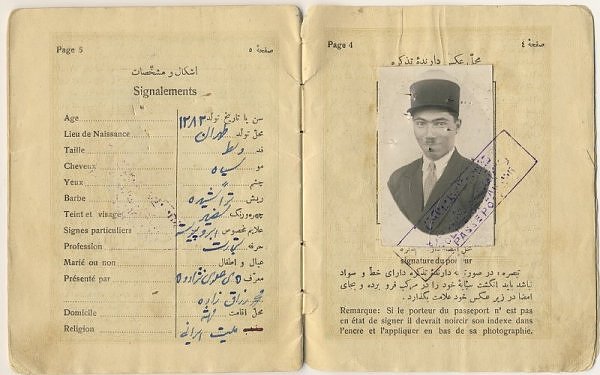 Page 5
صفحهٔ ٥
اشکال و مشخصات
Signalements
Age
سن یا تاریخ تولد ۱۲۸۲
Lieu de Naissance
محل تولد طهران
Taille
قد وسط
Cheveux
مو سیاه
Yeux
چشم
Barbe
ریش تراشیده
Teint et visage
چهره و رنگ
Signes particuliers
علایم مخصوص ابرو پیوسته
Profession
حرفه تجارت
Marié ou non
عیال و اطفال
Présenté par
معرف
Domicile
محل اقامت
Religion
مذهب ملیت ایرانی
Page 4
صفحهٔ ٤
محل عکس دارندهٔ تذکره
PASSEPORT
signature du porteur
تبصره: در صورتیکه دارندهٔ تذکره دارای خط و سواد
نباشد باید انگشت سبابهٔ خود را در مرکب فرو برده و بجای
امضا در زیر عکس خود علامت بگذارد.
Remarque: Si le porteur du passeport n' est pas
en état de signer il devrait noircir son indexe dans
l'encre et l'appliquer en bas de sa photographie.